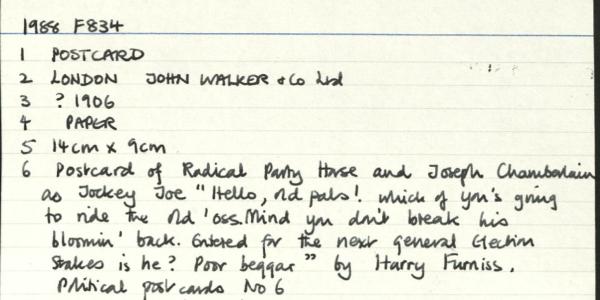 1988 F834
1 POSTCARD
2 LONDON JOHN WALKER & Co Ltd
3 ? 1906
4 PAPER
5 14cm x 9cm
6 Postcard of Radical Party Horse and Joseph Chamberlain
as Jockey Joe "Hello, old pals! which of you's going
to ride the old 'oss. Mind you don't break his
bloomin' back. Entered for the next general Election
Stakes is he? Poor beggar" by Harry Furniss.
Political postcards No 6